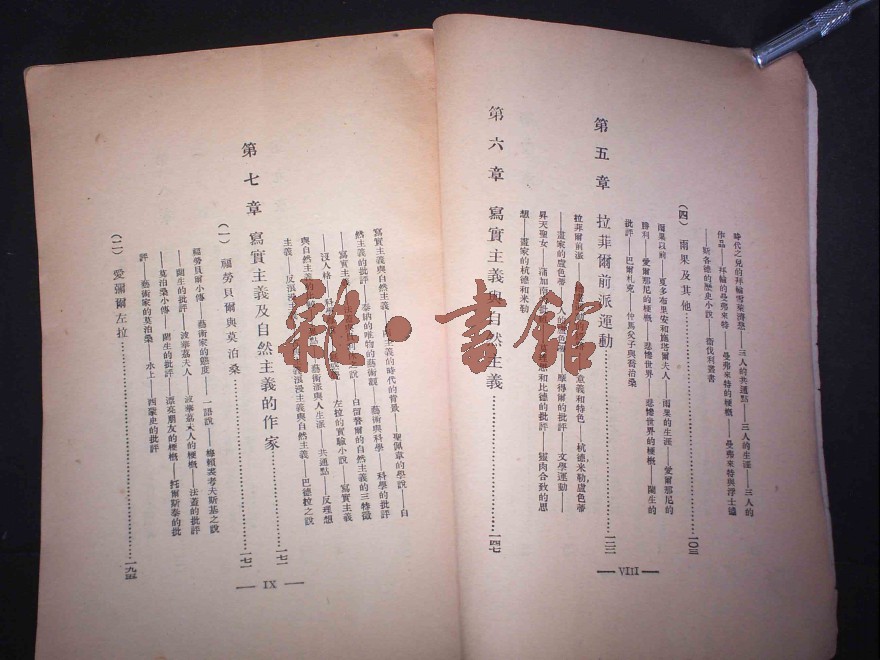 時代之兒的拜輪雪萊濟慈——三人的共通點——三人的生涯——三人的
作品——拜輪的曼弗來特——曼弗來特的梗概——曼弗來特與浮士德
——斯各德的歷史小說——衛伐利叢書
(四) 雨果及其他……一〇三
雨果以前——夏多布里安和施塔爾夫人——雨果的生涯——愛爾那尼的
勝利——愛爾那尼的梗概——悲慘世界——悲慘世界的梗概——關生的
批評——巴爾札克——仲馬父子與喬治桑
第五章 拉菲爾前派運動……一二三
拉菲爾前派——意義和特色——杭德,米勒,盧色蒂
——畫家的盧色蒂——人的盧色蒂——摩得爾的批評——文學運動——
昇天聖女——和比德的批評——靈肉合致的思
想——畫家的杭德和米勒
第六章 寫實主義與自然主義……一四七
寫實主義與自然主義——主義的時代的背景——聖佩韋的學說——自
然主義的批評——泰納的唯物的藝術觀——藝術與科學——科學的批評
——寫實主義——之說——白留替爾的自然主義的三特徵
——沒人格——科學——左拉的實驗小說——寫實主義
與自然主義的——點——藝術派與人生派——共通點——反理想
主義——反浪漫主義——浪漫主義與自然主義——巴德拉之說
第七章 寫實主義及自然主義的作家……一七一
(一) 福勞貝爾與莫泊桑……一七一
福勞貝爾小傳——藝術家的態度——一語說——梅賴裘考夫斯基之說
——關生的批評——波華嘉夫人——波華嘉夫人的梗概——法蓋的批評
——莫泊桑小傳——關生的批評——漂亮朋友的梗概——托爾斯泰的批
評——藝術家的莫泊桑——水上——西蒙史的批評
(二) 愛彌爾左拉……一九五
— VIII —
— IX —
雜·書館